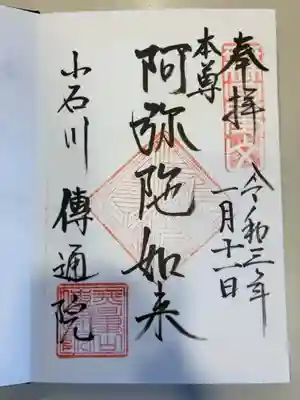 奉拝
令和三年
一月十一日
本尊
阿弥陀如来
小石川
傳通院